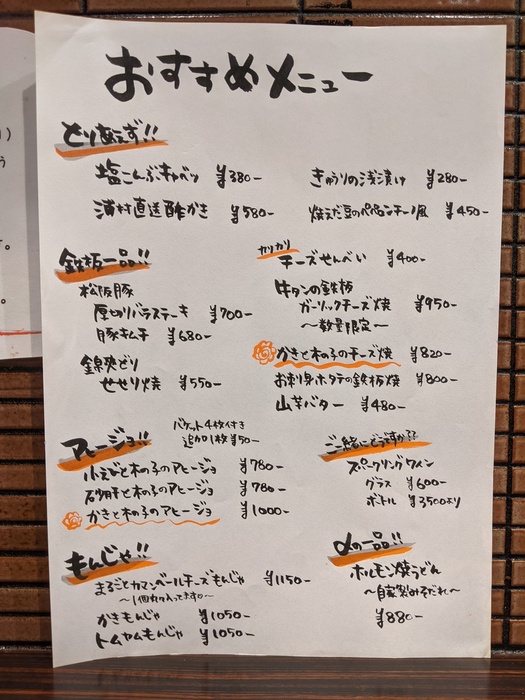 おすすめメニュー
とりあえず!!
塩こんぶキャベツ ¥380-
きゅうりの浅漬け ¥280-
浦村直送酢がき ¥580-
焼えだ豆のペペロンチーノ風 ¥450-
鉄板一品!!
松阪豚
厚切りバラステーキ ¥700-
豚キムチ ¥680-
錦爽どり
せせり焼 ¥550-
カリカリ
チーズせんべい ¥400-
牛タンの鉄板
ガーリックチーズ焼 ¥950-
〜数量限定〜
かきと木の子のチーズ焼 ¥820-
お刺身ホタテの鉄板焼 ¥800-
山芋バター ¥480-
アヒージョ!!
バケット4枚付き
追加1枚¥50-
小えびと木の子のアヒージョ ¥780-
砂肝と木の子のアヒージョ ¥780-
かきと木の子のアヒージョ ¥1000-
ご一緒にどうですか??
スパークリングワイン
グラス ¥600-
ボトル ¥3500より
もんじゃ!!
まるごとカマンベールチーズもんじゃ ¥1150-
〜1個丸々入ってます〜
かきもんじゃ ¥1050-
トムヤムもんじゃ ¥1050-
αの一品!!
ホルモン焼うどん
〜自家製みそだれ〜
¥880-